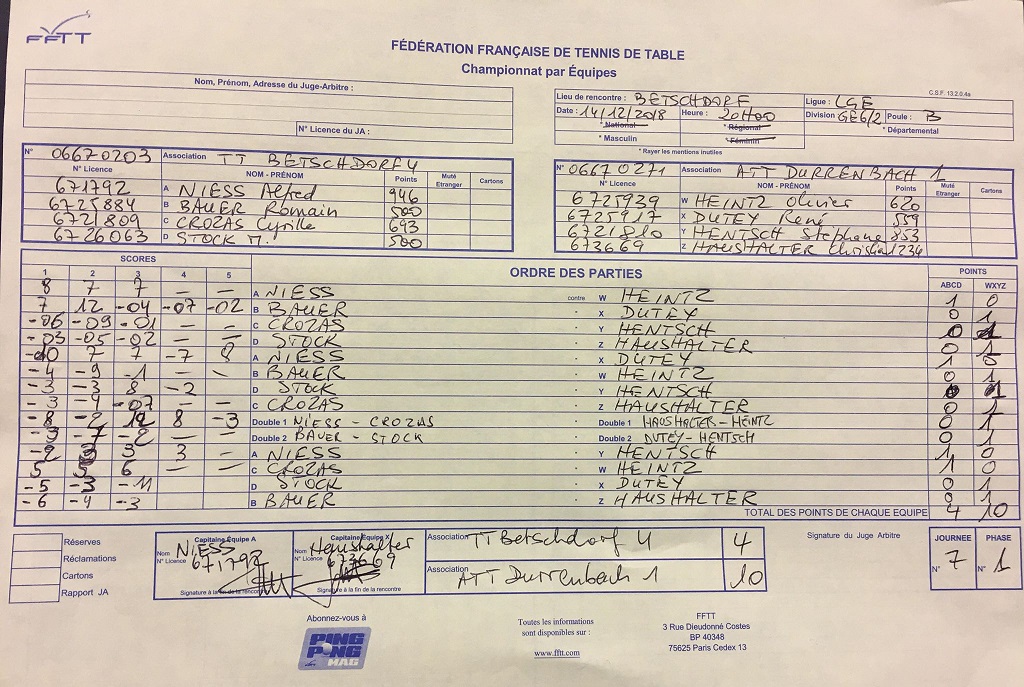 FFTT
FÉDÉRATION FRANÇAISE DE TENNIS DE TABLE
Championnat par Équipes
C.S.F. 13.2.0.4a
Nom, Prénom, Adresse du Juge-Arbitre :
N° Licence du JA :
Lieu de rencontre : BETSCHDORF Ligue : LGE
Date : 14/12/2018 Heure : 20H00 Division GE6/2 Poule : B
* National * Régional * Départemental
* Masculin * Féminin
* Rayer les mentions inutiles
N° 06670203 Association TT BETSCHDORF 4
N° Licence NOM - PRÉNOM Points Muté Etranger Cartons
671792 A NIESS Alfred 946
6725884 B BAUER Romain 500
6721809 C CROZAS Cyrille 693
6726063 D STOCK M. 500
N° 06670271 Association ATT DURRENBACH 1
N° Licence NOM - PRÉNOM Points Muté Etranger Cartons
6725939 W HEINTZ Olivier 620
6725917 X DUTEY René 559
6721810 Y HENTSCH Stephane 853
673669 Z HAUSHALTER Christian 1234
SCORES ORDRE DES PARTIES POINTS
1 2 3 4 5 ABCD WXYZ
8 7 7 – – A NIESS contre W HEINTZ 1 0
7 12 -04 -07 -02 B BAUER - X DUTEY 0 1
-06 -09 -01 – – C CROZAS - Y HENTSCH 0 1
-03 -05 -02 – – D STOCK - Z HAUSHALTER 0 1
-10 7 7 -7 8 A NIESS - X DUTEY 1 0
-4 -9 -1 – – B BAUER - W HEINTZ 0 1
-3 -3 8 -2 D STOCK - Y HENTSCH 0 1
-3 -4 -07 – – C CROZAS - Z HAUSHALTER 0 1
-8 -2 12 8 -3 Double 1 NIESS - CROZAS - Double 1 HAUSHALTER-HEINTZ 0 1
-3 -7 -2 – – Double 2 BAUER - STOCK - Double 2 DUTEY-HENTSCH 0 1
-2 3 3 3 – A NIESS - Y HENTSCH 1 0
5 5 6 – – C CROZAS - W HEINTZ 1 0
-5 -3 -11 D STOCK - X DUTEY 0 1
-6 -4 -3 B BAUER - Z HAUSHALTER 0 1
TOTAL DES POINTS DE CHAQUE EQUIPE 4 10
Réserves
Réclamations
Cartons
Rapport JA
Capitaine Équipe A
Nom NIESS
N° Licence 671792
Signature à la fin de la rencontre
Capitaine Équipe X
Nom Haushalter
N° Licence 673669
Signature à la fin de la rencontre
Association TT Betschdorf 4 4
Association ATT Durrenbach 1 10
Signature du Juge Arbitre
JOURNEE PHASE
N° 7 N° 1
Abonnez-vous à
PING PONG MAG
Toutes les informations
sont disponibles sur :
www.fftt.com
FFTT
3 Rue Dieudonné Costes
BP 40348
75625 Paris Cedex 13